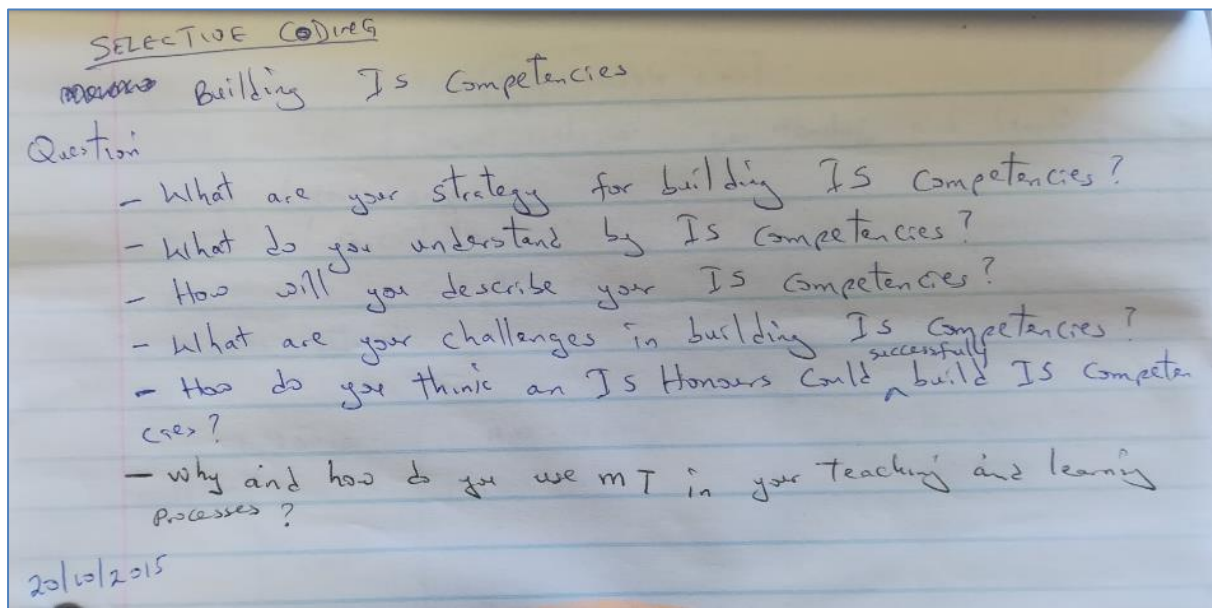 SELECTIVE CODING
Building IS Competencies
Question
- What are your strategy for building IS Competencies?
- What do you understand by IS Competencies?
- How will you describe your IS Competencies?
- What are your challenges in building IS Competencies?
- How do you think an IS Honours Could successfully build IS Competen
cies?
- Why and how do you use MT in your Teaching and learning
Processes?
20/10/2015